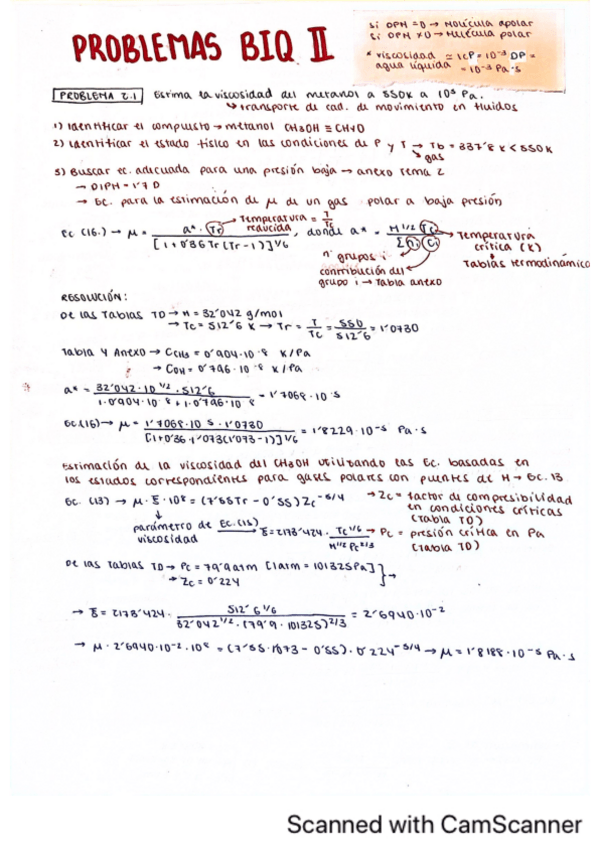 PROBLEMAS BIQ II
si DPM = 0 → Molécula apolar
si DPM ≠ 0 → Molécula polar
* viscosidad = 1cP = 10⁻³ DP =
agua líquida = 10⁻³ Pa·s
PROBLEMA 2.1 Estima la viscosidad del metanol a 550K a 10⁵ Pa.
↳ transporte de cad. de movimiento en fluidos
1) Identificar el compuesto → metanol CH3OH ≡ CH4O
2) Identificar el estado físico en las condiciones de P y T → Tb = 337'8 K < 550K
↳ gas
3) Buscar ec. adecuada para una presión baja → anexo tema 2
→ DIPM = 1'7 D
→ Ec. para la estimación de μ de un gas polar a baja presión
Ec (16.) → μ = a* · Tr / [1 + 0'36 Tr (Tr - 1)]^1/6 , donde a* = M^1/2 Tc / Σ ni Ci
→ Temperatura reducida = T/Tc
→ Temperatura crítica (K)
Tablas termodinámica
nº grupos i
contribución del grupo i → Tabla anexo
RESOLUCIÓN:
De las Tablas TD → M = 32'042 g/mol
→ Tc = 512'6 K → Tr = T/Tc = 550/512'6 = 1'0730
Tabla 4 Anexo → CCH3 = 0'904·10⁻⁸ K/Pa
→ COH = 0'796·10⁻⁸ K/Pa
a* = 32'042·10^1/2 · 512'6 / 1·0'904·10⁻⁸ + 1·0'796·10⁻⁸ = 1'7068·10⁻⁵
Ec.(16) → μ = 1'7068·10⁻⁵ · 1'0730 / [1+0'36·1'073(1'073-1)]^1/6 = 1'8229·10⁻⁵ Pa·s
Estimación de la viscosidad del CH3OH utilizando las Ec. basadas en
los estados correspondientes para gases polares con puentes de H → Ec. 13
Ec. (13) → μ · ξ · 10⁸ = (7'55 Tr - 0'55) Zc^-5/4 → Zc = factor de compresibilidad
en condiciones críticas
(Tabla TD)
parámetro de viscosidad Ec.(15) → ξ = 2173'424 · Tc^1/6 / M^1/2 Pc^2/3 → Pc = presión crítica en Pa
(Tabla TD)
De las Tablas TD → Pc = 79'9 atm [1atm = 101325Pa] } →
→ Zc = 0'224
→ ξ = 2173'424 · 512'6^1/6 / 32'042^1/2 · (79'9 · 101325)^2/3 = 2'6940·10⁻²
→ μ · 2'6940·10⁻² · 10⁸ = (7'55 · 1'073 - 0'55) · 0'224^-5/4 → μ = 1'8188·10⁻⁵ Pa·s
Scanned with CamScanner